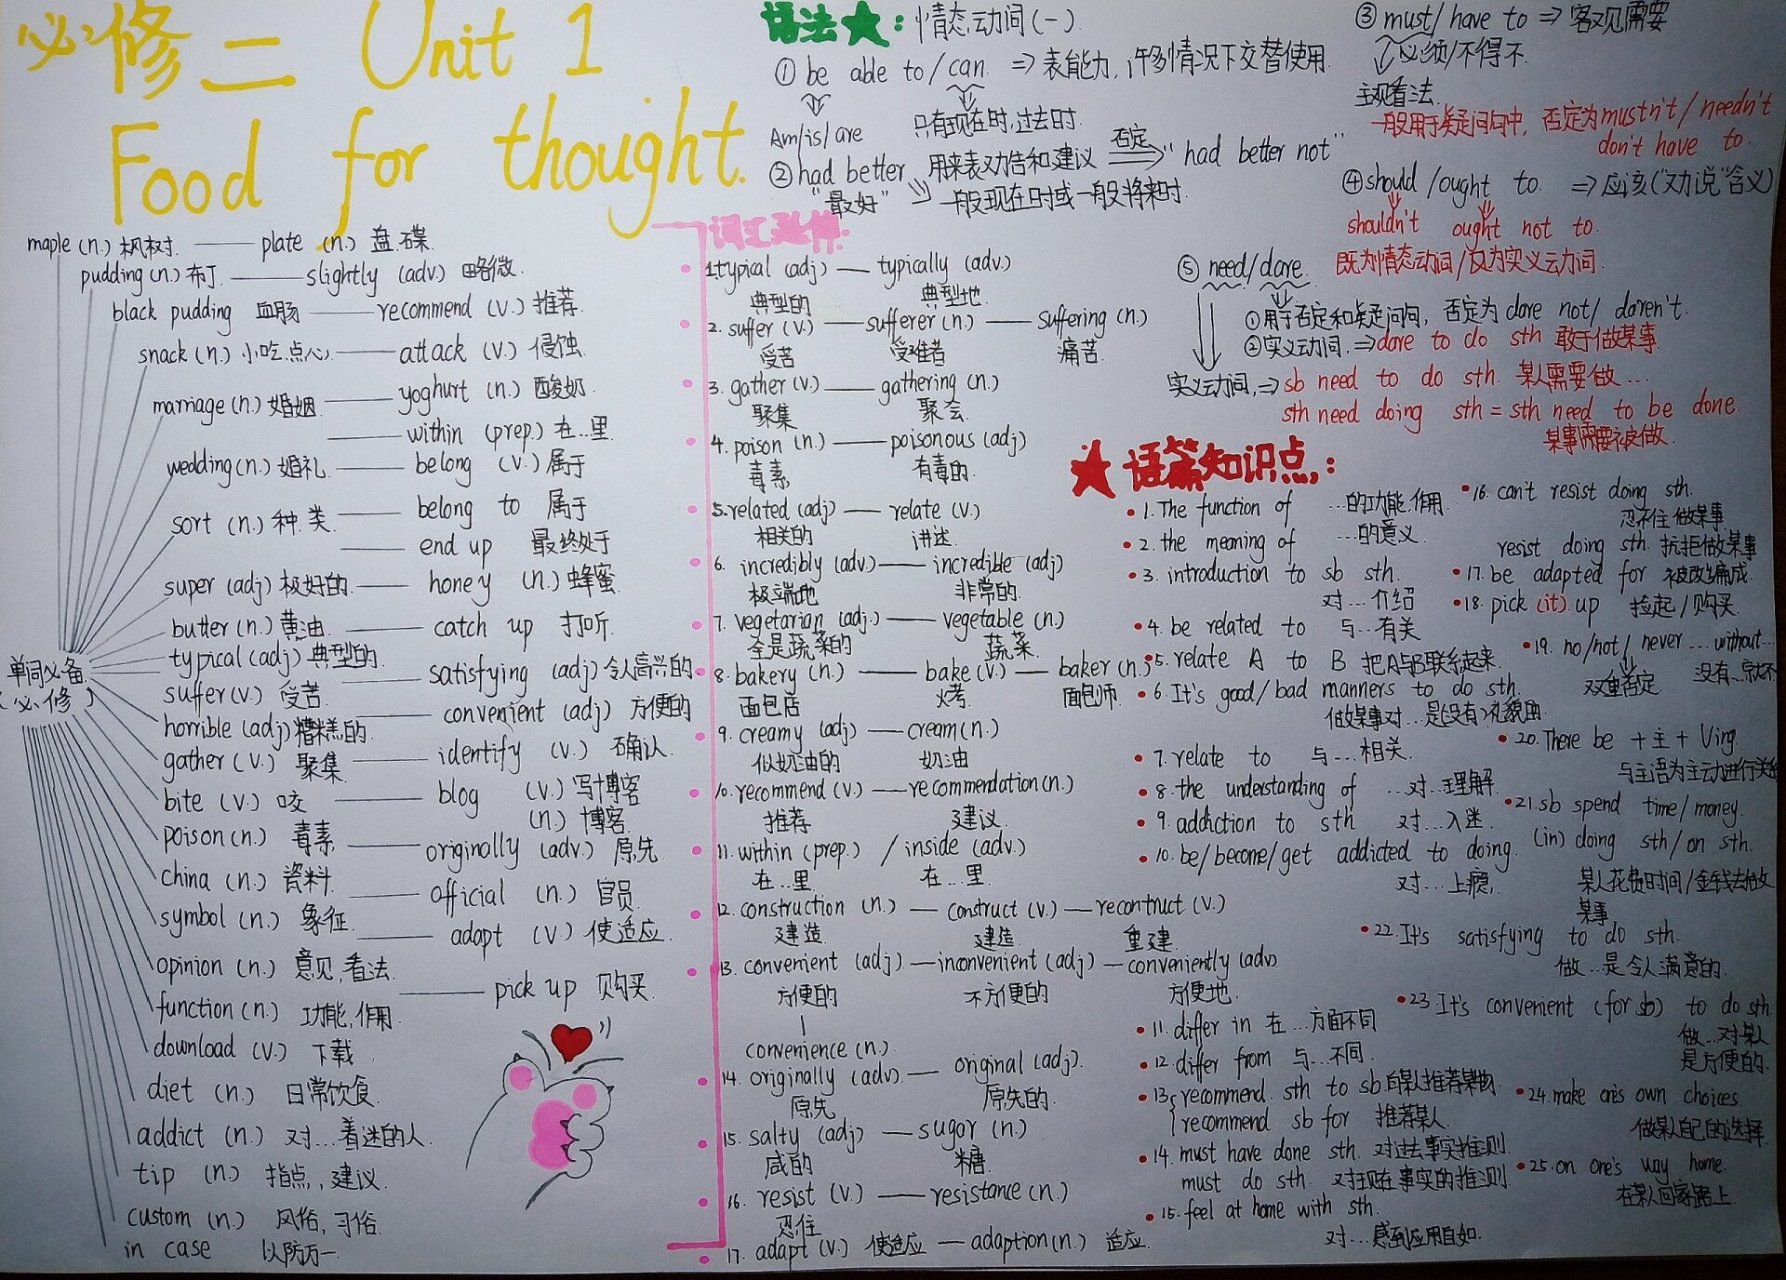 必修二 Unit 1
Food for thought.
maple (n.) 枫树 —— plate (n.) 盘.碟
pudding (n.) 布丁 —— slightly (adv.) 略微
black pudding 血肠 —— recommend (v.) 推荐
snack (n.) 小吃.点心 —— attack (v.) 侵蚀
marriage (n.) 婚姻 —— yoghurt (n.) 酸奶
—— within (prep.) 在...里
wedding (n.) 婚礼 —— belong (v.) 属于
sort (n.) 种.类 —— belong to 属于
—— end up 最终处于
super (adj) 极好的 —— honey (n.) 蜂蜜
butter (n.) 黄油 —— catch up 打听
typical (adj) 典型的
单词必备
(必修)
satisfying (adj) 令人高兴的
suffer (v.) 受苦 —— convenient (adj) 方便的
horrible (adj) 糟糕的 —— identify (v.) 确认
gather (v.) 聚集
bite (v.) 咬 —— blog (v.) 写博客
(n.) 博客
poison (n.) 毒素 —— originally (adv.) 原先
china (n.) 瓷料 —— official (n.) 官员
symbol (n.) 象征 —— adapt (v.) 使适应
opinion (n.) 意见,看法 —— pick up 购买
function (n.) 功能,作用
download (v.) 下载
diet (n.) 日常饮食
addict (n.) 对...着迷的人
tip (n.) 指点,建议
custom (n.) 风俗,习俗
in case 以防万一
词汇延伸:
1.typical (adj) — typically (adv.)
典型的 典型地
2. suffer (v.) — sufferer (n.) — suffering (n.)
受苦 受难者 痛苦
3. gather (v.) — gathering (n.)
聚集 聚会
4. poison (n.) — poisonous (adj)
毒素 有毒的
5.related (adj) — relate (v.)
相关的 讲述
6. incredibly (adv.) — incredible (adj)
极端地 非常的
7. vegetarian (adj.) — vegetable (n.)
全是蔬菜的 蔬菜
8. bakery (n.) — bake (v.) — baker (n.)
面包店 烤 面包师
9. creamy (adj) — cream (n.)
似奶油的 奶油
10.recommend (v.) — recommendation (n.)
推荐 建议
11.within (prep.) / inside (adv.)
在...里 在...里
12. construction (n.) — construct (v.) — recontruct (v.)
建造 建造 重建
13. convenient (adj) — inconvenient (adj) — conveniently (adv)
方便的 不方便的 方便地
convenience (n.)
14. originally (adv.) — original (adj).
原先 原先的
15. salty (adj) — sugar (n.)
咸的 糖
16. resist (v.) — resistance (n.)
忍住
17. adapt (v.) 使适应 — adaption (n.) 适应
语法★: 情态动词(一).
① be able to/can. ⇒ 表能力,许多情况下交替使用
Am/is/are 只有现在时,过去时.
② had better 用来表劝告和建议 否定⇒ "had better not"
"最好" 一般现在时或一般将来时.
③ must/have to ⇒ 客观需要
必须/不得不
主观看法.
一般用于疑问句中, 否定为 mustn't / needn't
don't have to.
④ should /ought to. ⇒ 应该("劝说"含义)
shouldn't ought not to.
⑤ need/dare. 既为情态动词/又为实义动词.
①用于否定和疑问句, 否定为 dare not/ daren't.
②实义动词,⇒dare to do sth 敢于做某事.
实义动词,⇒ sb need to do sth. 某人需要做...
sth need doing sth = sth need to be done.
某事需要被做.
★ 语篇知识点:
1.The function of ...的功能.作用
2. the meaning of ...的意义
3. introduction to sb sth.
对...介绍
4. be related to 与...有关
5. relate A to B 把A与B联系起来
6. It's good/bad manners to do sth.
做某事对...是(没有)礼貌的
7. relate to 与...相关.
8. the understanding of ...对...理解
9. addiction to sth 对...入迷.
10. be/become/get addicted to doing.
对...上瘾,
11. differ in 在...方面不同
12. differ from 与...不同.
13. recommend. sth to sb 向某人推荐某物
recommend sb for 推荐某人
14. must have done sth. 对过去事实推测
must do sth. 对现在事实的推测
15. feel at home with sth.
对...感到应用自如.
16. can't resist doing sth.
忍不住做某事
resist doing sth. 抗拒做某事
17. be adapted for 被改编成
18. pick (it) up 捡起/购买
19. no/not/never ... without...
双重否定 没有...就不
20. There be + 主 + Ving.
与主语为主动进行关系
21. sb spend time/money.
(in) doing sth/on sth.
某人花费时间/金钱去做
某事
22. It's satisfying to do sth.
做...是令人满意的.
23. It's convenient (for sb) to do sth.
做...对某人
是方便的.
24. make one's own choices.
做某人自己的选择
25. on one's way home.
在某人回家路上.